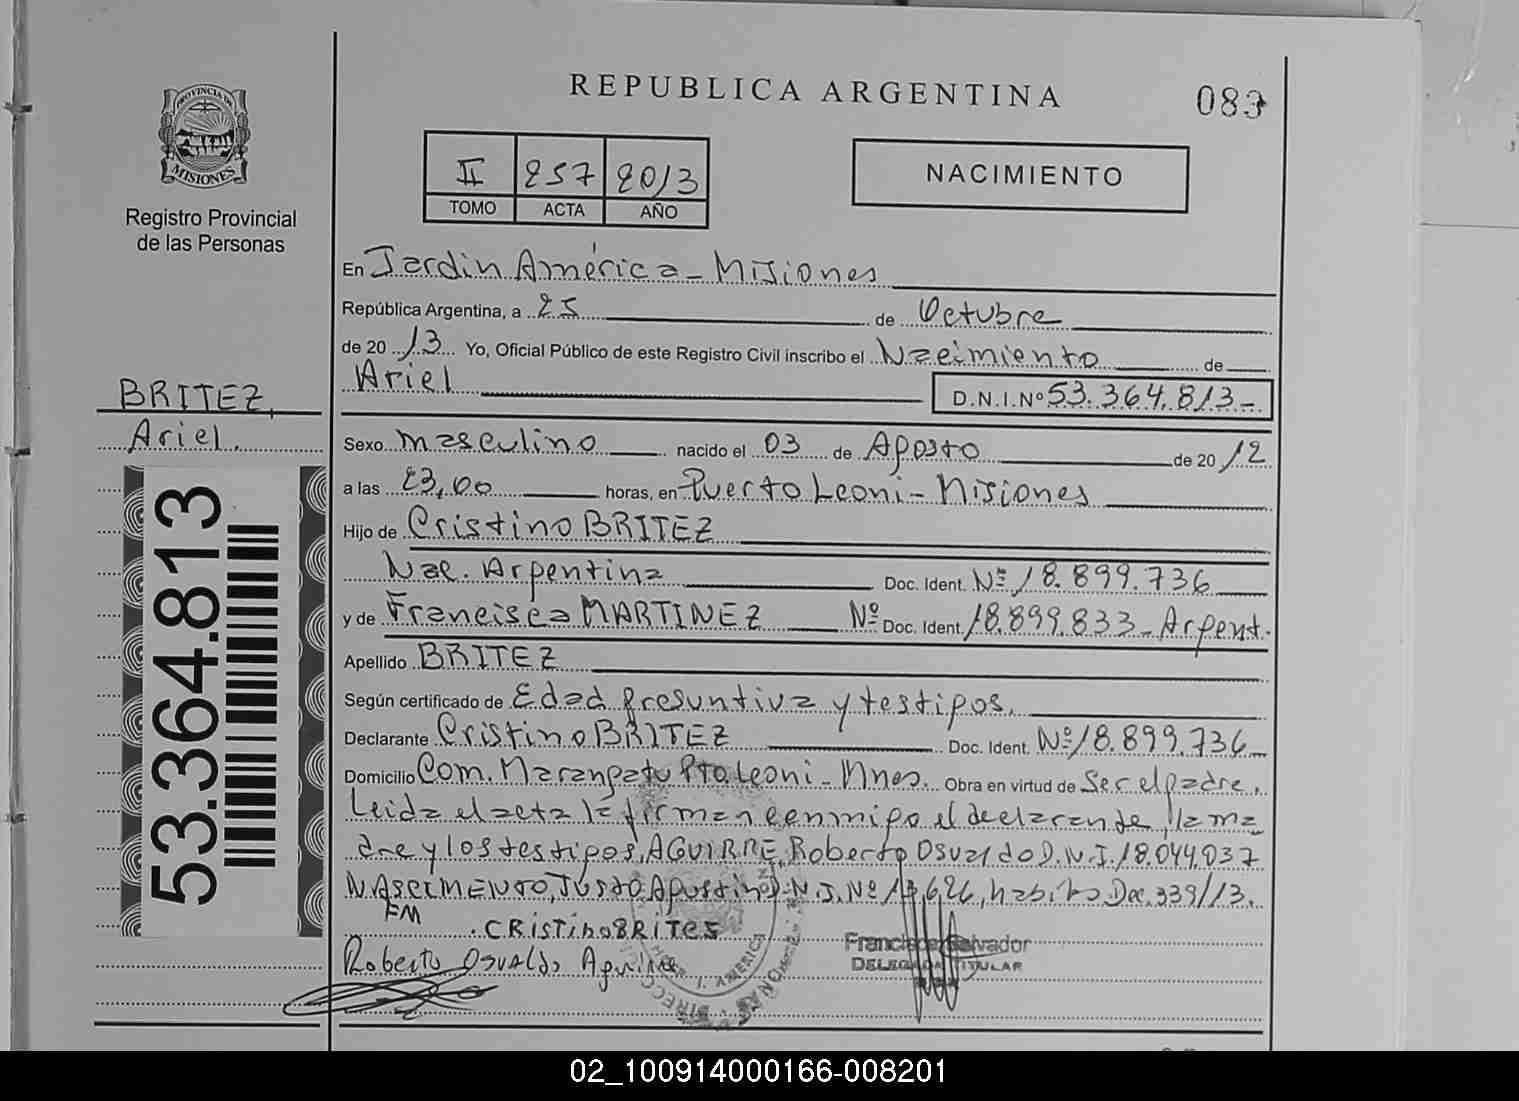 REPUBLICA ARGENTINA
083
PROVINCIA DE
MISIONES
Registro Provincial
de las Personas
II 257 2013
TOMO ACTA AÑO
NACIMIENTO
En Jardin América - Misiones
República Argentina, a 25 de Octubre
de 20 13 Yo, Oficial Público de este Registro Civil inscribo el Nacimiento de
Ariel
D.N.I.Nº 53.364.813-
BRITEZ,
Ariel.
53.364.813
Sexo masculino nacido el 03 de Agosto de 20 12
a las 23,00 horas, en Puerto Leoni - Misiones
Hijo de Cristino BRITEZ
Nac. Argentina Doc. Ident. Nº 18.899.736
y de Francisca MARTINEZ Nº Doc. Ident. 18.899.833 - Argent.
Apellido BRITEZ
Según certificado de Edad presuntiva y testigos.
Declarante Cristino BRITEZ Doc. Ident. Nº 18.899.736
Domicilio Com. Marangatu Pto. Leoni - Mnes. Obra en virtud de Ser el padre.
Leida el acta la firman conmigo el declarante, la ma
dre y los testigos, AGUIRRE, Roberto Osvaldo D.N.I. 18.044.037
NASCIMENTO, Justo Agustino habito Dec. 339/13.
FM
CRISTINO BRITES
Roberto Osvaldo Aguirre
Salvador
DELEGADA TITULAR
J. AMERICA
02_100914000166-008201